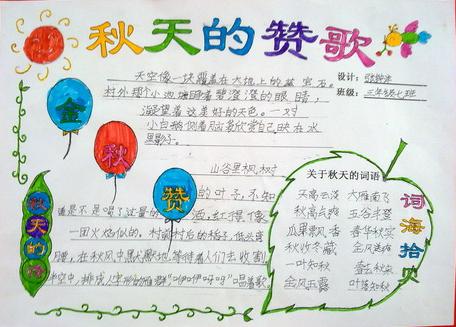 秋天的赞歌
天空像一块覆盖在大地上的蓝宝石。
村外那个小池塘睁着碧澄澄的眼睛，
凝望着这美好的天色。一对
小白鹅侧着
欣赏自己映在水
里影子。
设计：
班级：三年级七班
山谷里枫树
的叶子，不知
道是不是喝了过量的酒，红得像
一团火焰似的。村前村后的稻子，低
腰，在秋风中
等待着人们去收割
半空中，排成人字形的雁群"咿咿呀呀"唱着歌
金
秋
赞
秋天的
关于秋天的词语
天高云淡 大雁南飞
秋高气爽 五谷丰登
瓜果飘香 春华秋实
秋收冬藏
一叶知秋
金风玉露 叶落知秋
词海拾贝